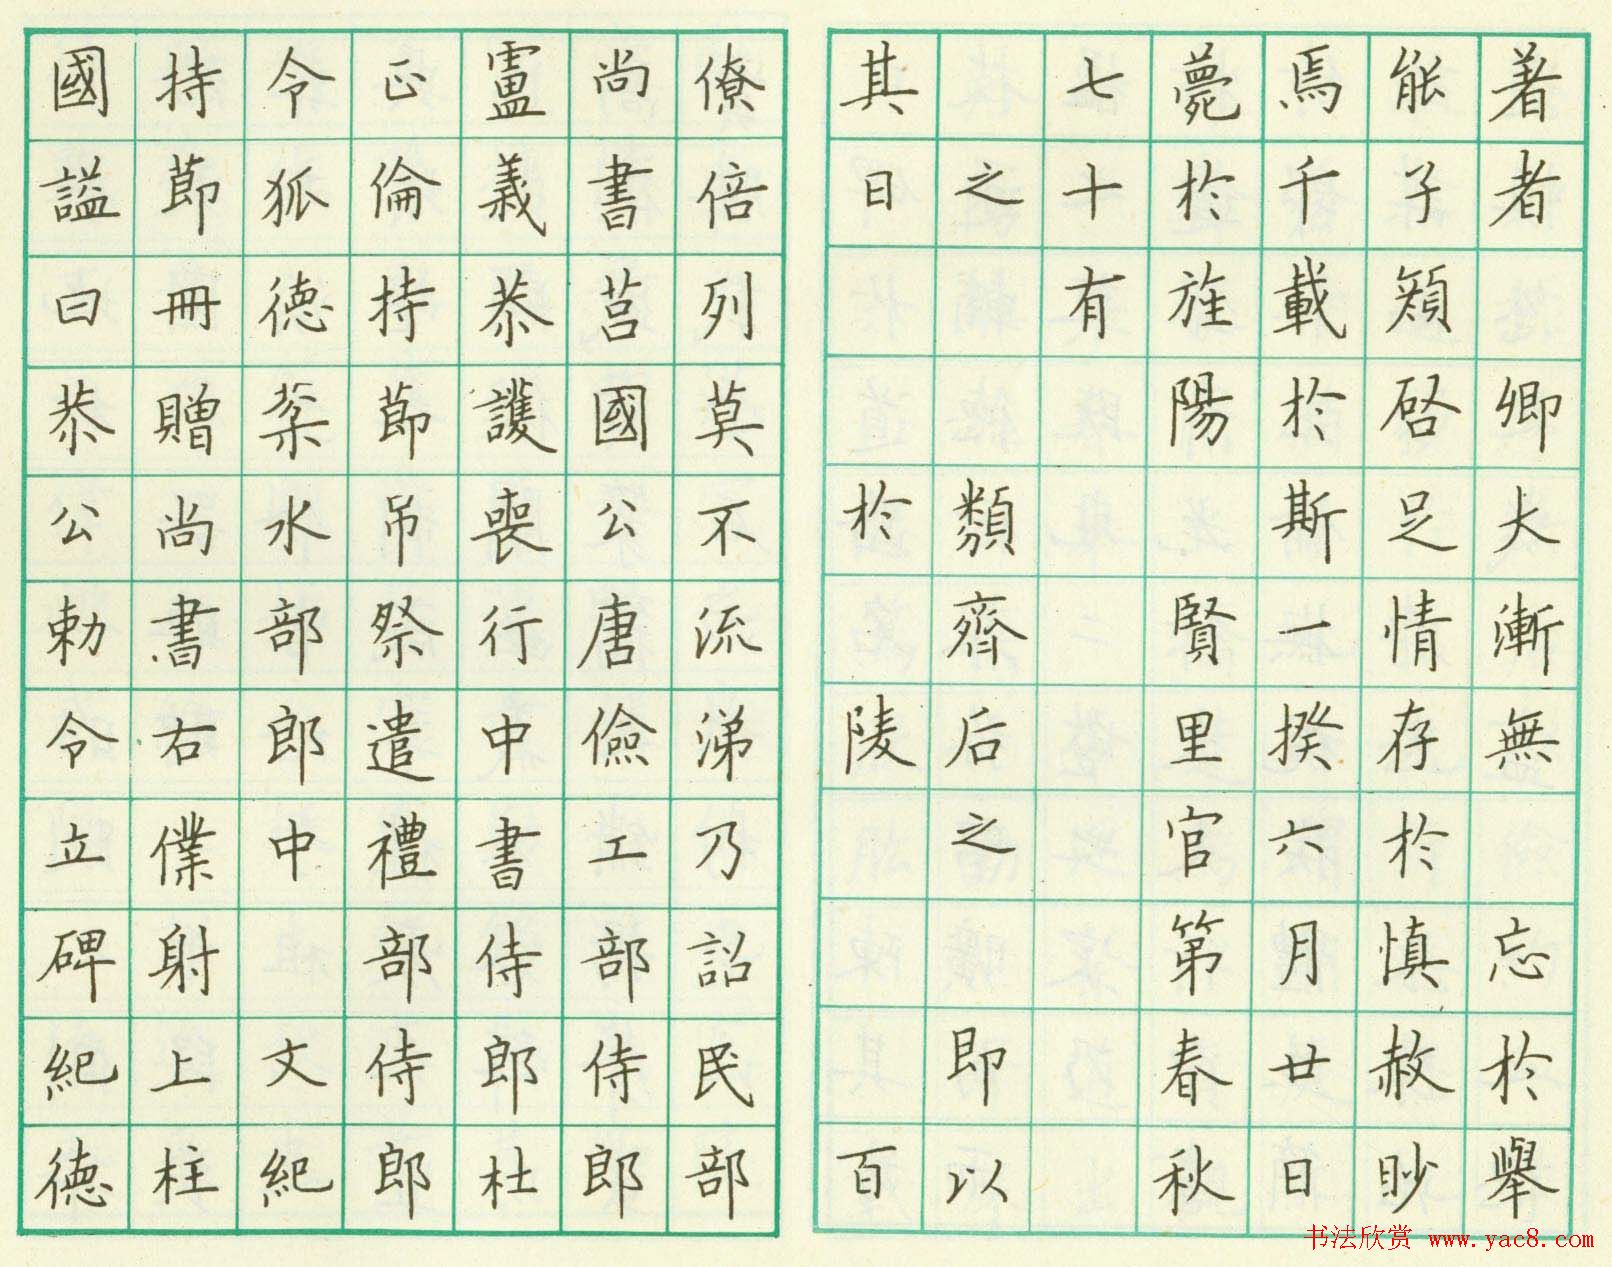 著者卿大漸無忘於舉
能子頍啓足情存於慎赦眇
焉千載於斯一揆六月廿日
薨於旌陽賢里官第春秋
七十有
之類齊后之即以
其日於陵百
僚倍列莫不流涕乃詔民部
尚書莒國公唐儉工部侍郎
盧義恭護喪行中書侍郎杜
正倫持節吊祭遣禮部侍郎
令狐德棻水部郎中文紀
持節冊贈尚書右僕射上柱
國謚曰恭公勅令立碑紀德
书法欣赏 www.yac8.com